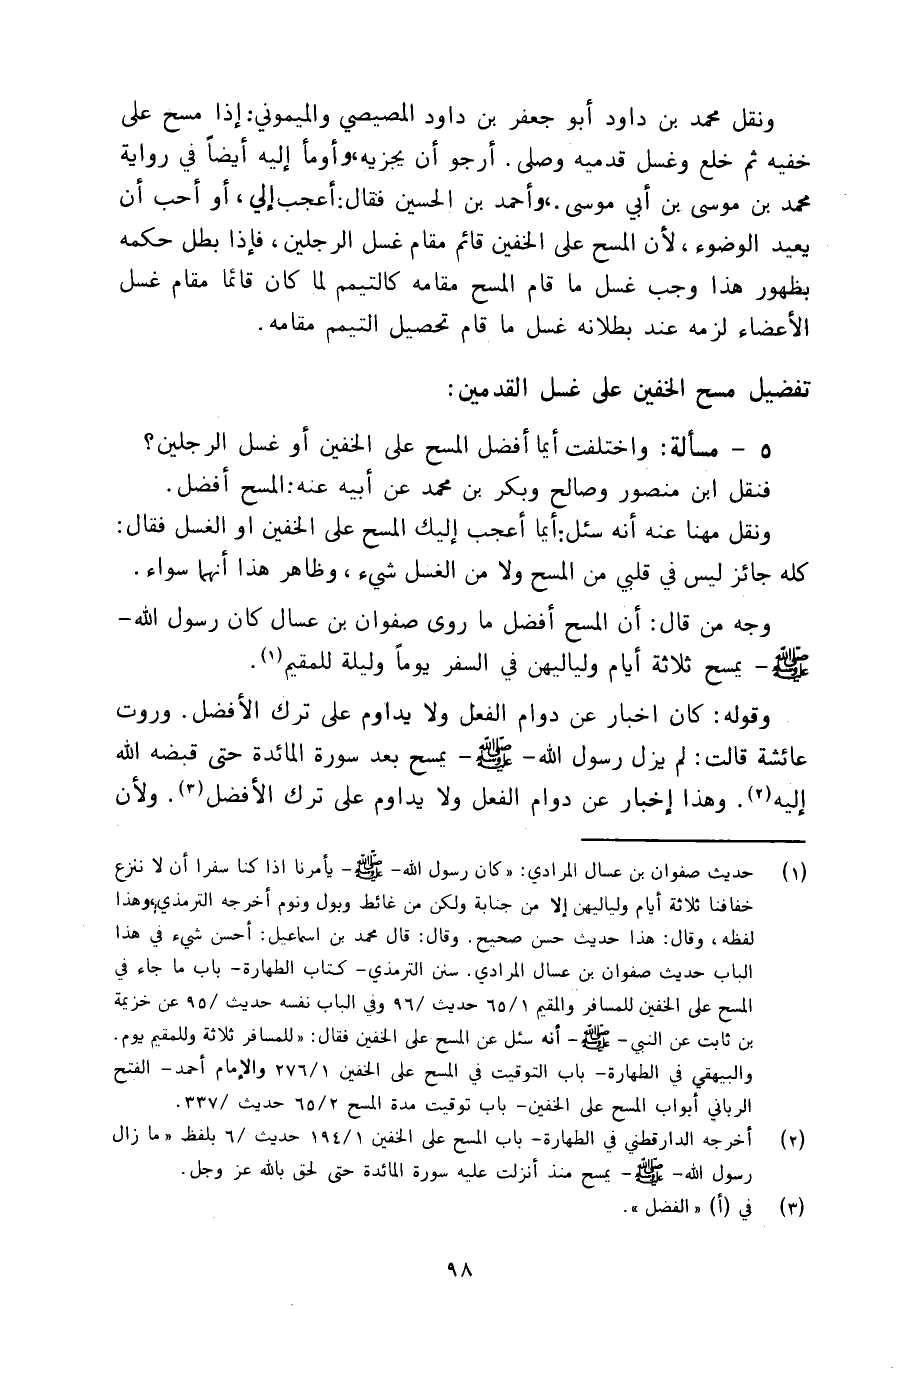 ونقل محمد بن داود أبو جعفر بن داود المصيصي والميموني: إذا مسح على
خفيه ثم خلع وغسل قدميه وصلى. أرجو أن يجزيه، وأومأ إليه أيضاً في رواية
محمد بن موسى بن أبي موسى.، وأحمد بن الحسين فقال: أعجب إلي، أو أحب أن
يعيد الوضوء، لأن المسح على الخفين قائم مقام غسل الرجلين، فإذا بطل حكمه
بظهور هذا وجب غسل ما قام المسح مقامه كالتيمم لما كان قائما مقام غسل
الأعضاء لزمه عند بطلانه غسل ما قام تحصيل التيمم مقامه.
تفضيل مسح الخفين على غسل القدمين:
٥ - مسألة: واختلفت أيما أفضل المسح على الخفين أو غسل الرجلين؟
فنقل ابن منصور وصالح وبكر بن محمد عن أبيه عنه: المسح أفضل.
ونقل مهنا عنه أنه سئل: أيما أعجب إليك المسح على الخفين او الغسل فقال:
كله جائز ليس في قلبي من المسح ولا من الغسل شيء، وظاهر هذا أنهما سواء.
وجه من قال: أن المسح أفضل ما روى صفوان بن عسال كان رسول الله-
ﷺ- يمسح ثلاثة أيام ولياليهن في السفر يوماً وليلة للمقيم(١).
وقوله: كان اخبار عن دوام الفعل ولا يداوم على ترك الأفضل. وروت
عائشة قالت: لم يزل رسول الله- ﷺ- يمسح بعد سورة المائدة حتى قبضه الله
إليه(٢). وهذا إخبار عن دوام الفعل ولا يداوم على ترك الأفضل(٣). ولأن
(١) حديث صفوان بن عسال المرادي: «كان رسول الله- ﷺ- يأمرنا اذا كنا سفرا أن لا ننزع
خفافنا ثلاثة أيام ولياليهن إلا من جنابة ولكن من غائط وبول ونوم أخرجه الترمذي، وهذا
لفظه، وقال: هذا حديث حسن صحيح. وقال: قال محمد بن اسماعيل: أحسن شيء في هذا
الباب حديث صفوان بن عسال المرادي. سنن الترمذي- كتاب الطهارة- باب ما جاء في
المسح على الخفين للمسافر والمقيم ٦٥/١ حديث /٩٦ وفي الباب نفسه حديث /٩٥ عن خزيمة
بن ثابت عن النبي- ﷺ- أنه سئل عن المسح على الخفين فقال: «للمسافر ثلاثة وللمقيم يوم.
والبيهقي في الطهارة- باب التوقيت في المسح على الخفين ٢٧٦/١ والإمام أحمد- الفتح
الرباني أبواب المسح على الخفين- باب توقيت مدة المسح ٦٥/٢ حديث /٣٣٧.
(٢) أخرجه الدارقطني في الطهارة- باب المسح على الخفين ١٩٤/١ حديث /٦ بلفظ «ما زال
رسول الله- ﷺ- يمسح منذ أنزلت عليه سورة المائدة حتى لحق بالله عز وجل.
(٣) في (أ) «الفضل».
٩٨